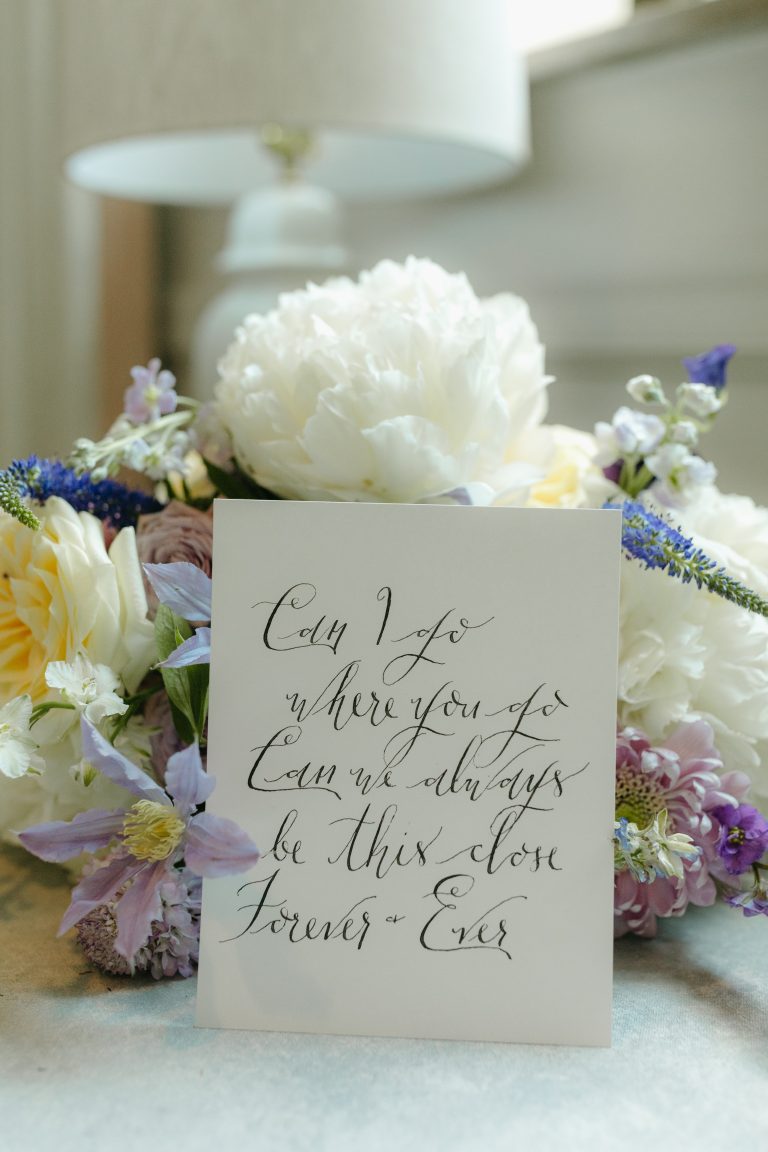 Can I go
where you go
Can we always
be this close
Forever + Ever